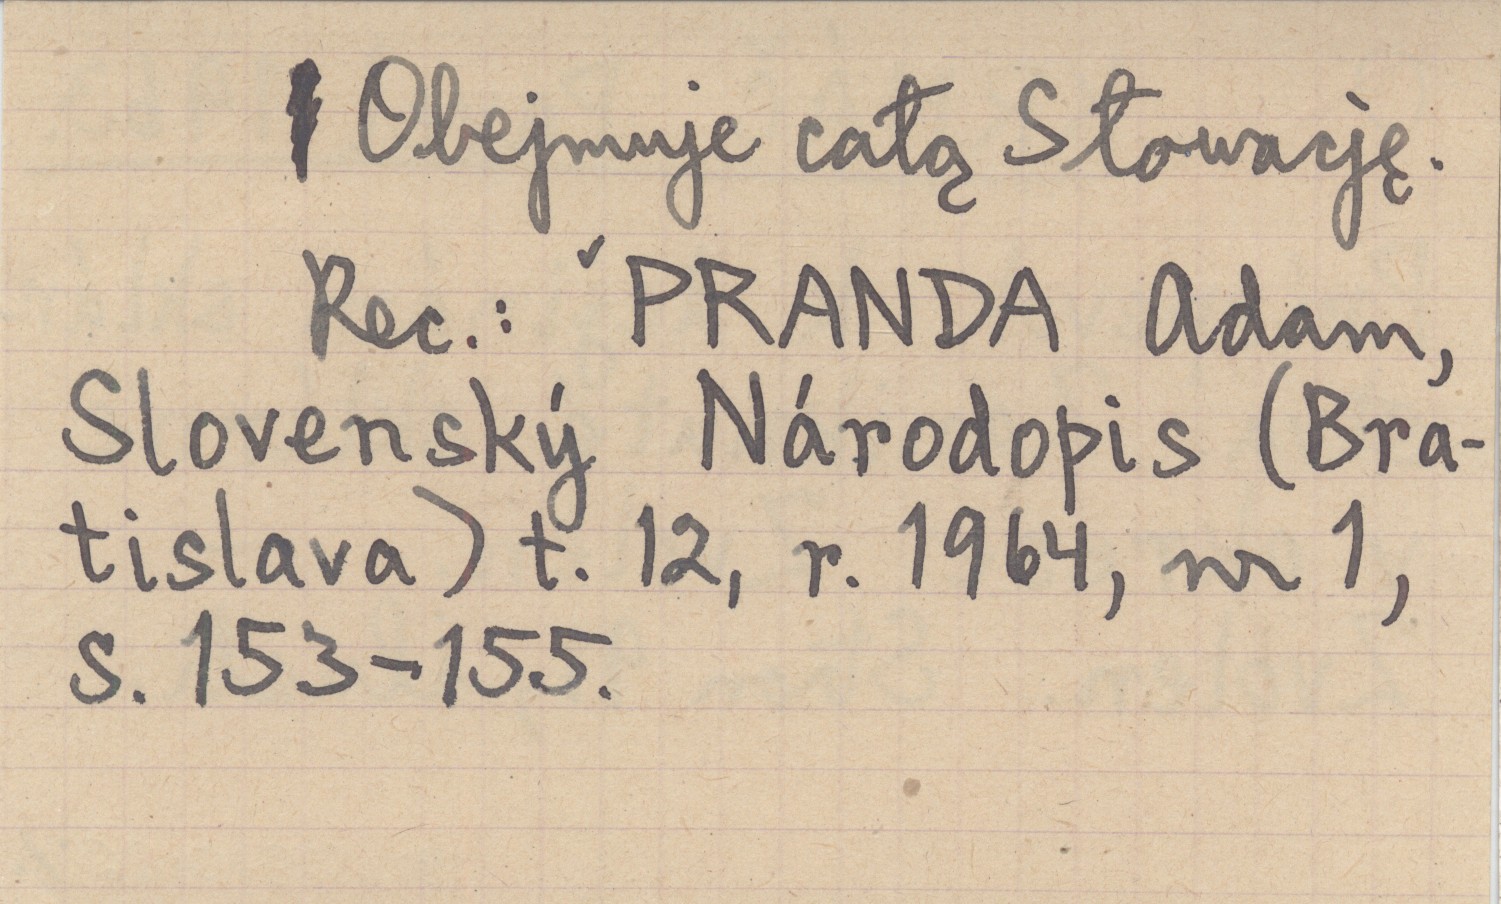 Obejmuje całą Słowację.
Rec.: PRANDA Adam,
Slovenský Národopis (Bra-
tislava) t. 12, r. 1964, nr 1,
s. 153-155.